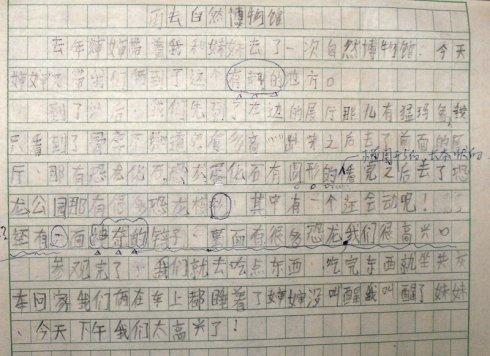 再去自然博物馆
去年婶婶带着我和妹妹去了一次自然博物馆、今天
婶婶又带我们来到了这个有趣的地方。
到了以后,我们先到了左边的展厅那儿有猛犸象
只看到了 之后去了前面的展
厅、那有恐龙化石、恐龙蛋化石有圆形的 看完之后去了恐
龙公园那有很多恐龙模型、其中有一个还会动呢!
还有一面神奇的镜子、里面有很多恐龙我们很高兴。
参观完了、我们就去吃点东西、吃完东西就坐公共
车回家我们俩在车上都睡着了婶婶没叫醒我叫醒了妹妹
、今天下午我们太高兴了!